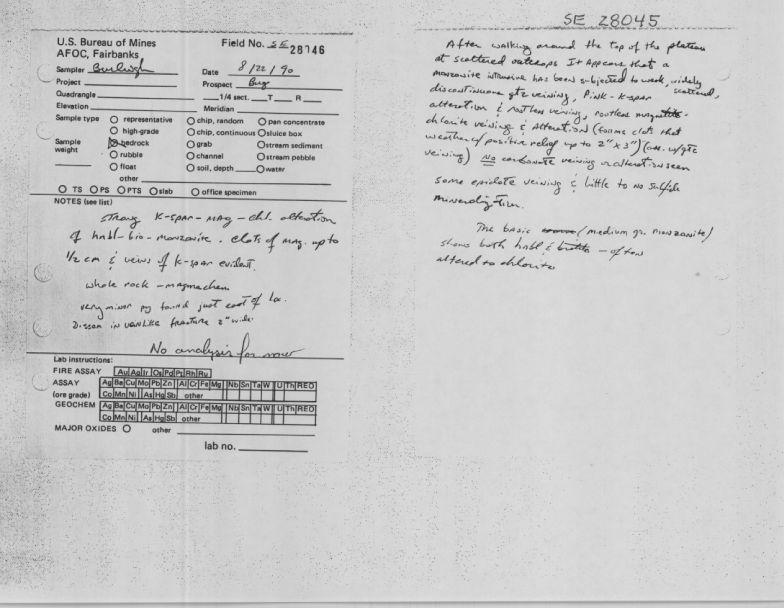 U.S. Bureau of Mines
AFOC, Fairbanks
Field No. SE 28146
Sampler Burleigh
Date 8/22/90
Project
Prospect Bug
Quadrangle
1/4 sect. T R
Elevation
Meridian
Sample type
representative chip, random pan concentrate
high-grade chip, continuous sluice box
Sample weight
bedrock grab stream sediment
rubble channel stream pebble
float soil, depth water
other
TS PS PTS slab office specimen
NOTES (see list)
strong K-spar - mag - chl. alteration
of hnbl-bio-monzonite. clots of mag. up to
1/2 cm & veins of K-spar evident.
whole rock - magmachem
very minor py found just east of loc.
Dissem in veinlike fracture 2" wide.
No analysis for now
Lab instructions:
FIRE ASSAY Au Ag Ir Os Pd Pt Rh Ru
ASSAY Ag Ba Cu Mo Pb Zn Al Cr Fe Mg Nb Sn Ta W U Th REO
(ore grade) Co Mn Ni As Hg Sb other
GEOCHEM Ag Ba Cu Mo Pb Zn Al Cr Fe Mg Nb Sn Ta W U Th REO
Co Mn Ni As Hg Sb other
MAJOR OXIDES other
lab no.
SE 28045
After walking around the top of the plateau
at scattered outcrops It Appears that a
monzonite intrusive has been subjected to weak, widely
scattered,
discontinuous qtz veining, Pink-K-spar
alteration & rootless veining, rootless magnetite-
chlorite veining & Alteration (forms clots that
weather w/ positive relief up to 2" x 3") (ass. w/qtz
veining) No carbonate veining or alteration seen
some epidote veining & little to no sulfide
mineralization.
The basic (medium gr. monzonite)
shows both hnbl & biotite - often
altered to chlorite